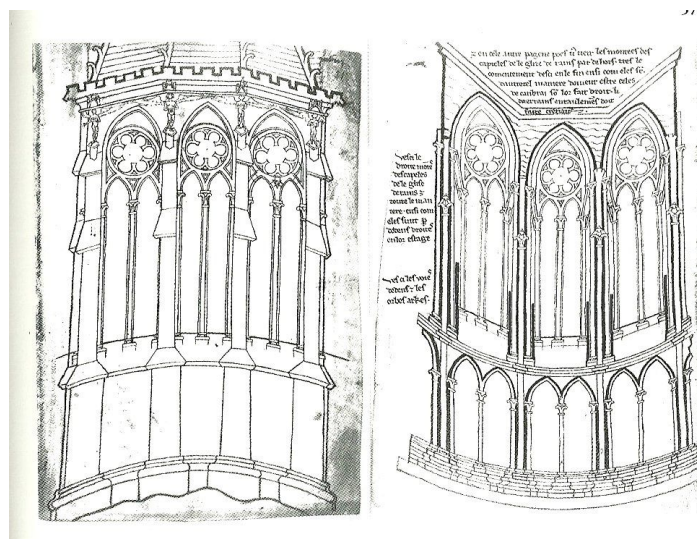 en cele autre pagene poes veir les montees des
capieles de le glize de rains par dehors tres le
comencement desci en le fin ensi com eles sũ.
dautretel maniere doivent estre celes
de canbrai sõ lor fait droit. li
daerrains entaulemens doit
faire creniaus
vesci le
droite mõte
des capeles
de le glize
de rains z
toute le man
iere. ensi com
eles sunt p
dedens droite
enlor estage
vesci les voie
dedens. z les
orbes arkes.